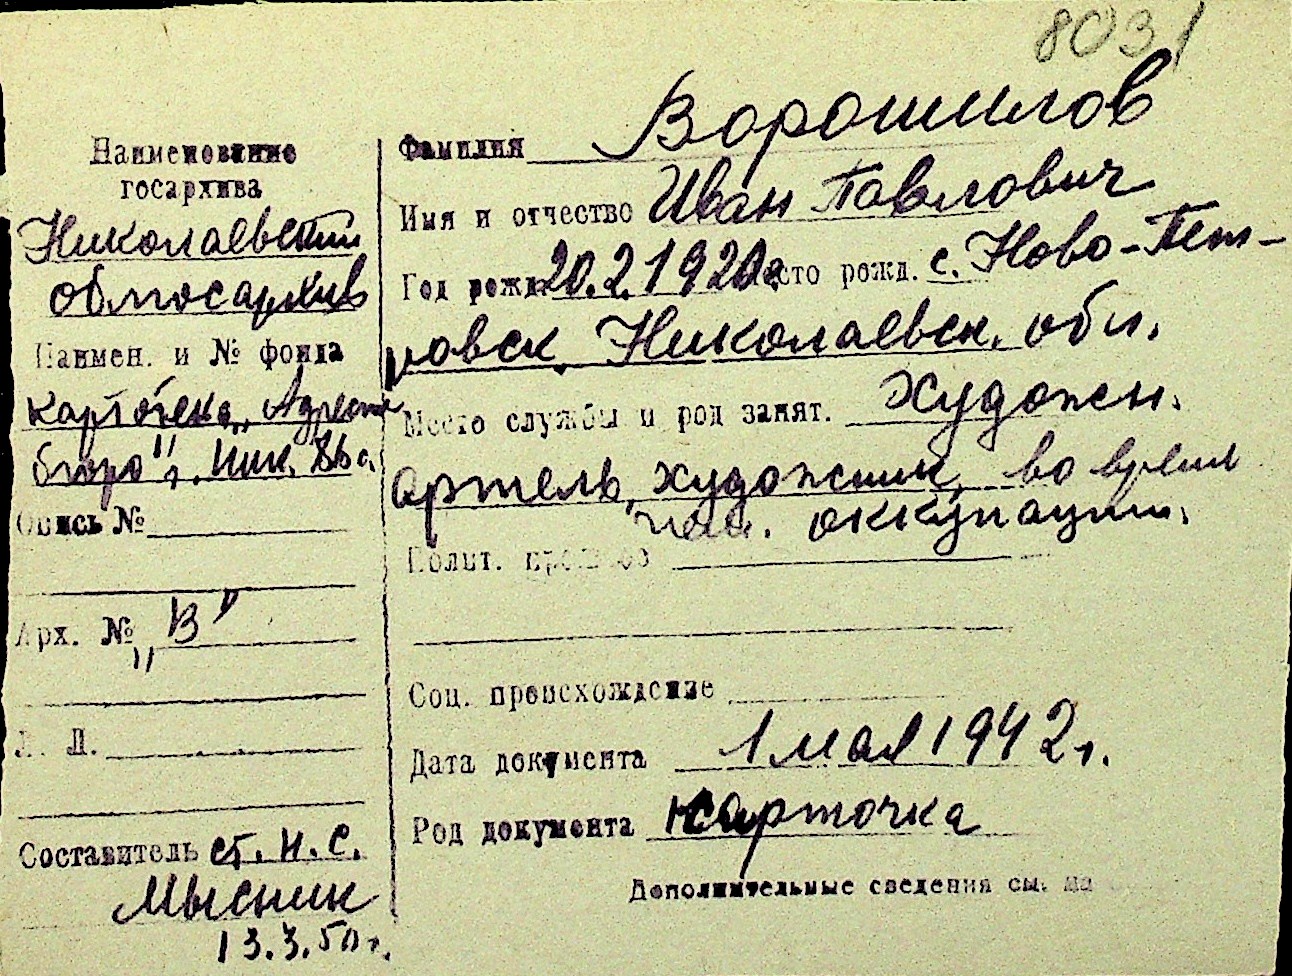 8031
Наименование
госархива
Николаевский
облгосархив
Наимен. и № фонда
картотека „Адресн
бюро" г. Ник.
Опись №
Арх. № „В"
Л. Л.
Составитель ст. н. с.
Мысник
13.3.50 г.
Фамилия Ворошилов
Имя и отчество Иван Павлович
Год рожд. 20.2.1920 г. Место рожд. с. Ново-Пет-
ровск, Николаевск. обл.
Место службы и род занят. Художн.
артель, художник, во время
нем. оккупации.
Полит. прошлое
Соц. происхождение
Дата документа 1 мая 1942 г.
Род документа карточка
Дополнительные сведения см. на